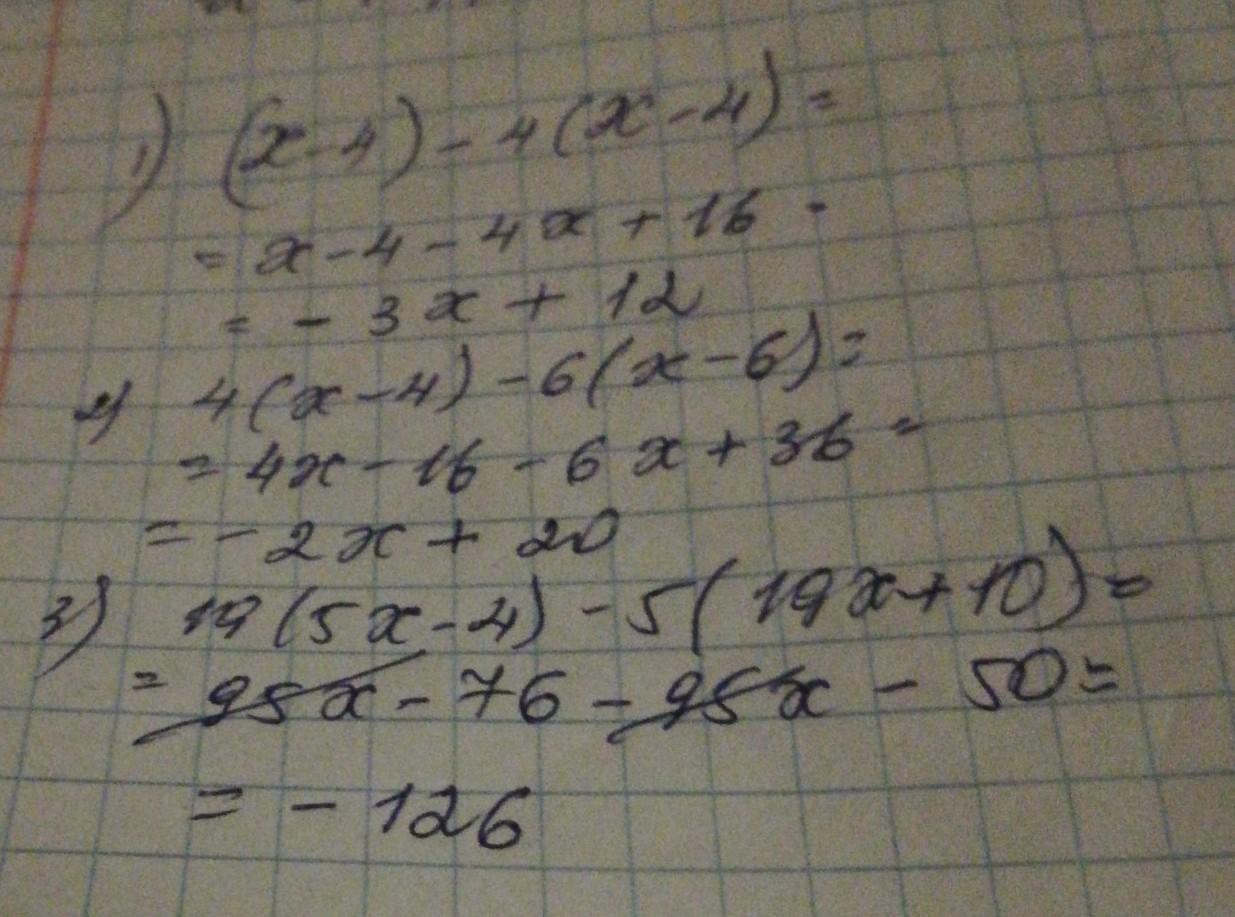 1) (x-4)-4(x-4)=
= x-4-4x+16 -
= -3x+12
2) 4(x-4)-6(x-6)=
= 4x-16-6x+36=
= -2x+20
3) 19(5x-4)-5(19x+10)=
= 95x-76-95x-50=
= -126